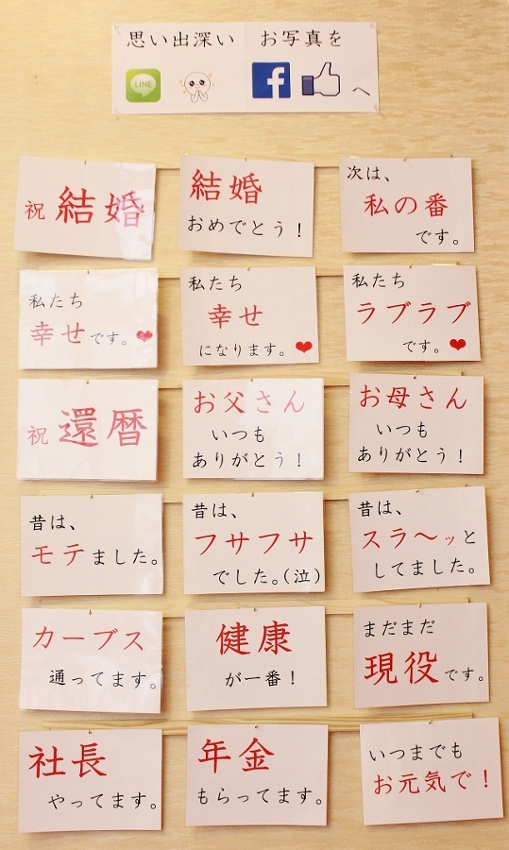 思い出深い お写真を
LINE
へ
祝 結婚
結婚
おめでとう！
次は、
私の番
です。
私たち
幸せです。
私たち
幸せ
になります。
私たち
ラブラブ
です。
祝 還暦
お父さん
いつも
ありがとう！
お母さん
いつも
ありがとう！
昔は、
モテました。
昔は、
フサフサ
でした。(泣)
昔は、
スラ〜ッと
してました。
カーブス
通ってます。
健康
が一番！
まだまだ
現役です。
社長
やってます。
年金
もらってます。
いつまでも
お元気で！